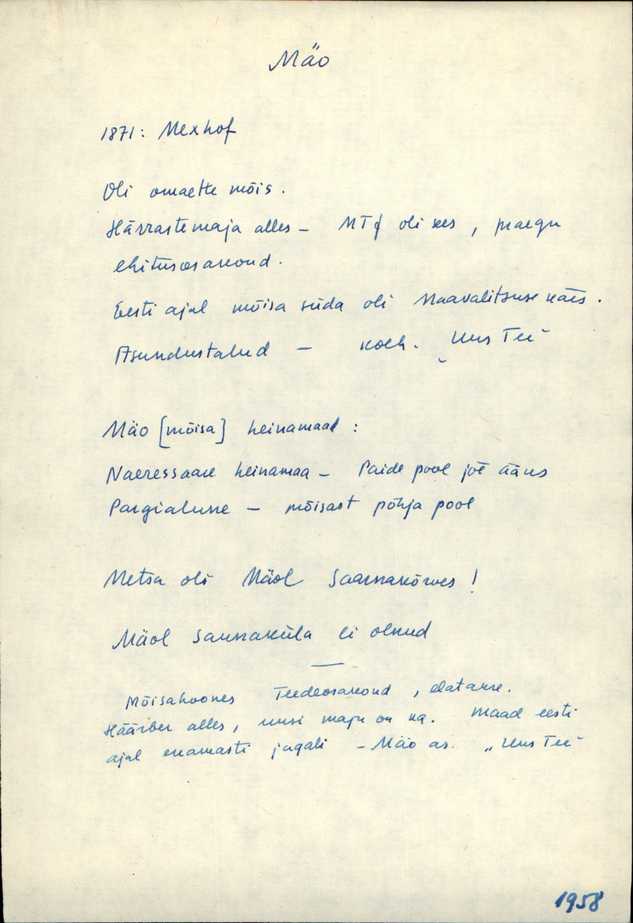 Mäo
1871: Mexhof
Oli omaette mõis.
Härrastemaja alles – MTJ oli sees, praegu
ehitusosakond.
Eesti ajal mõisa süda oli Maavalitsuse käes.
Asundustalud – kolh. „Uus Tee"
Mäo [mõisa] heinamaad:
Naeressaare heinamaa – Paide pool jõe ääres
Pargialune – mõisast põhja pool
Metsa oli Mäol Saarnakõrves!
Mäol saunaküla ei olnud
Mõisahoones Teedeosakond, elatakse.
Häärber alles, uusi maju on ka. Maad eesti
ajal enamasti jagati – Mäo as. „Uus Tee"
1958